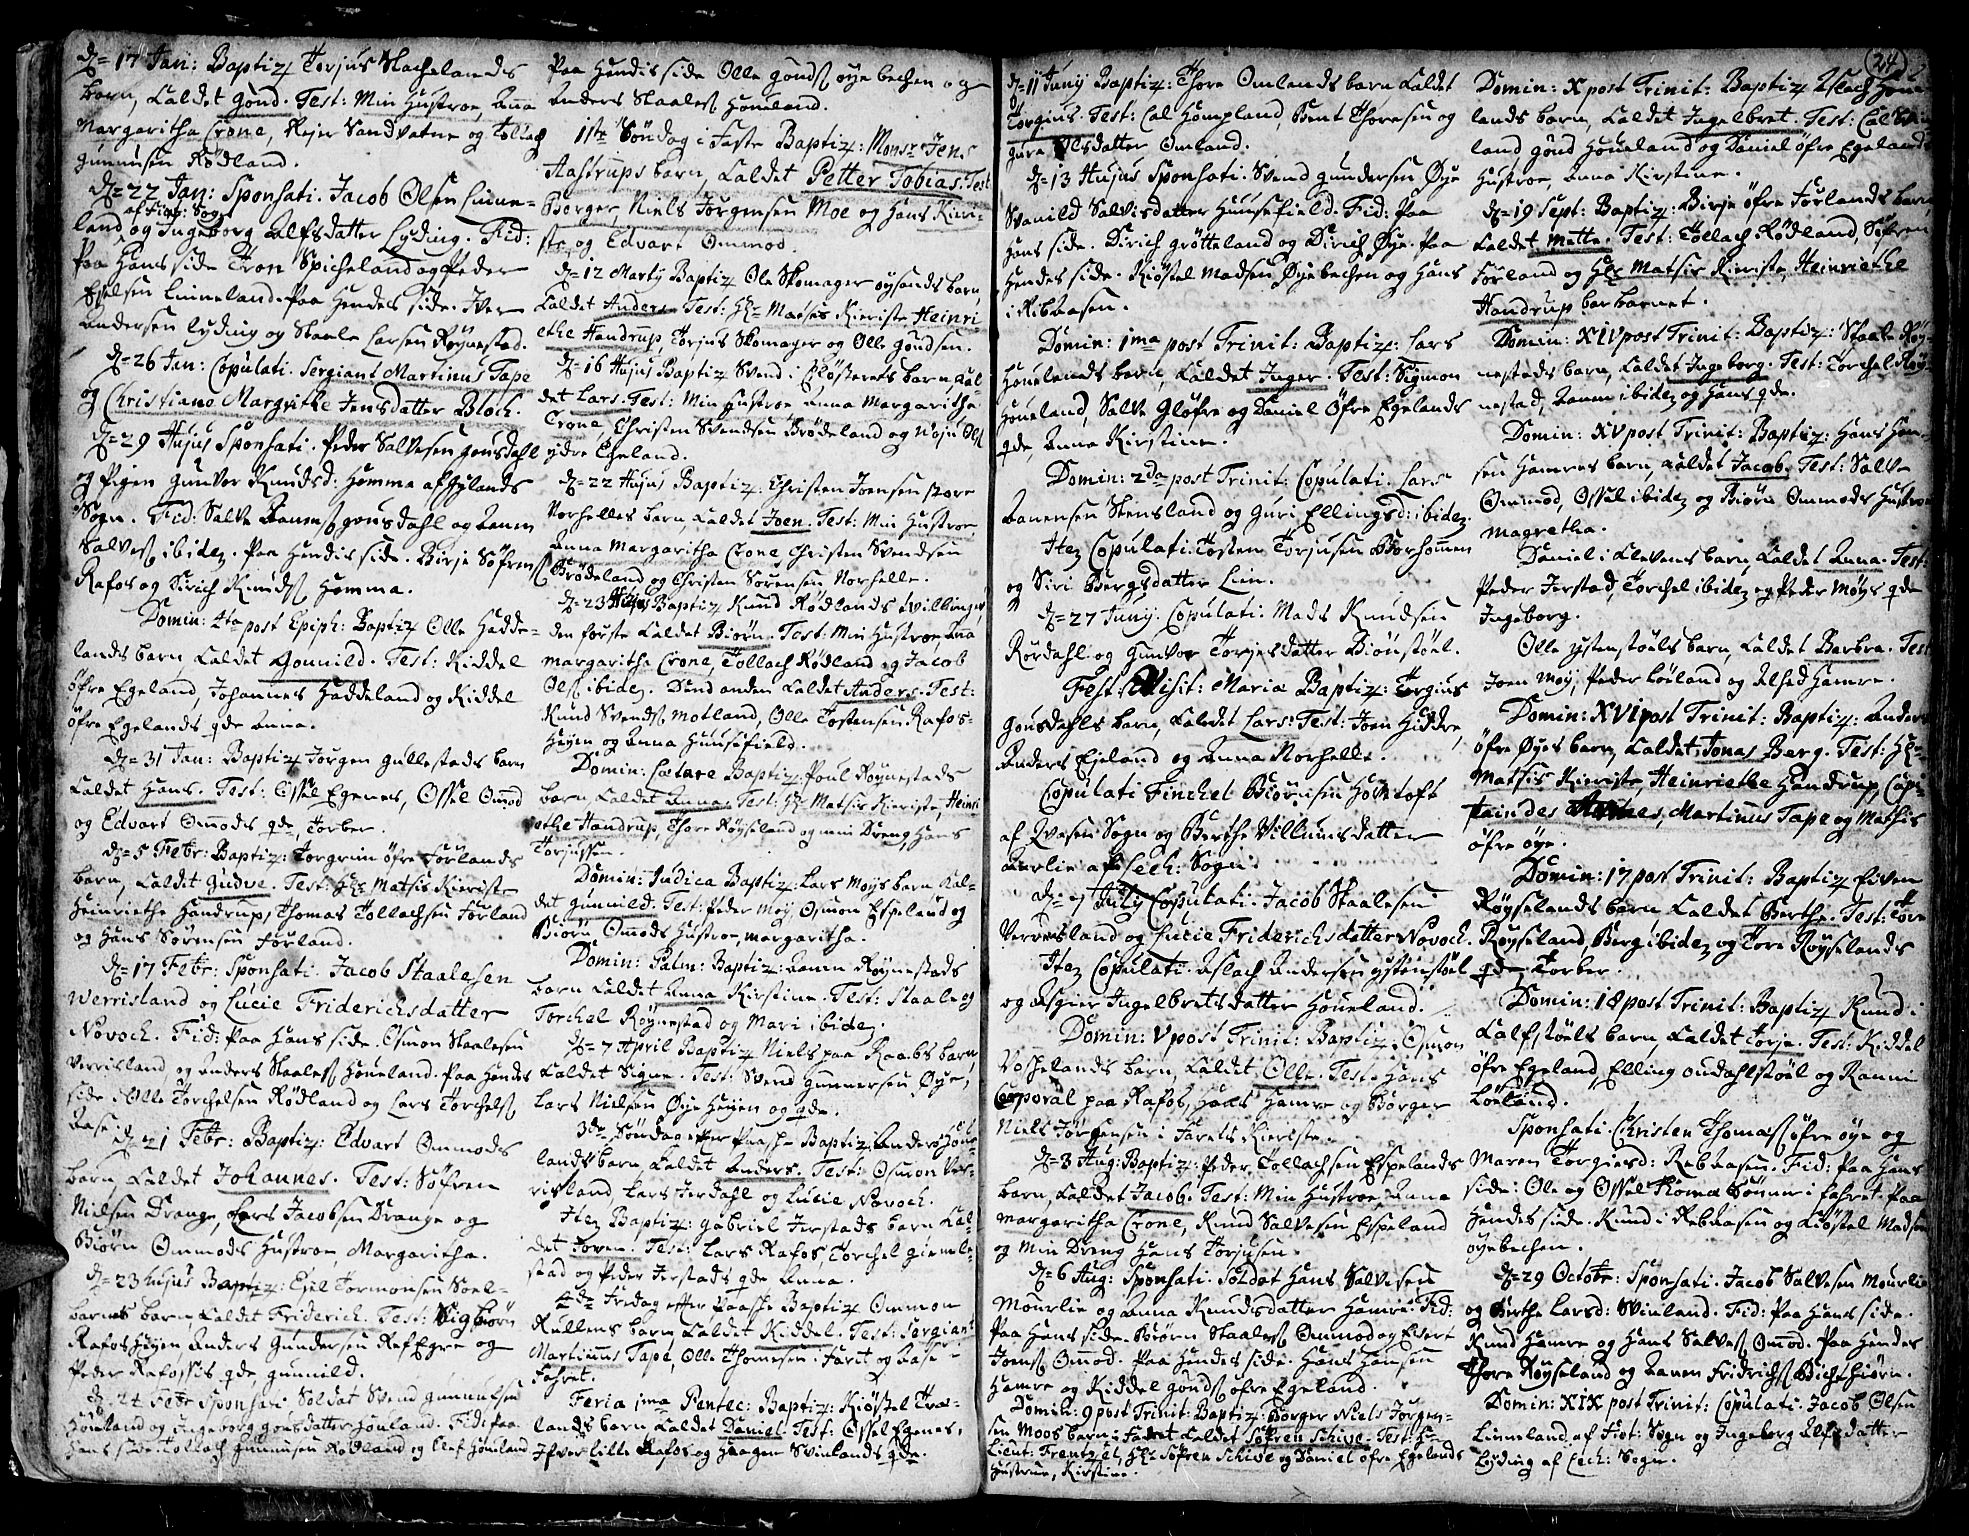 D= 17 Jan: Baptiz Torjus Stachelands
barn, kaldet Gond. Test: Min Hustroe, Anna
Margaritha Crone, Reier Sandvatne og Tollach
Gunnusen Rødland.
D= 22 Jan: Sponsati. Jacob Olsen Linne-
af Fiot: Sogn
land og Ingeborg Alfsdatter Lyding. Fid:
Paa Hans side Tron Spicheland og Peder
Eielsen Linneland. Paa Hendes side. Iver
Andersen Lyding og Staale Larsen Röynestad.
D= 26 Jan: Copulati. Sergiant Martinus Tape
og Christiane Margrethe Jensdatter Bloch.
D= 29 Hujus Sponsati. Peder Salvesen Gousdahl
og Pigen Gunvor Knudsd: Homme af Hylands
Sogn. Fid: Salve Aanens Gousdahl og Aanen
Salves ibidem. Paa Hendis side. Birje Söfrens
Rafos og Sirich Knuds Homma.
Domin: 4ta post Epiph: Baptiz Olle Hadde-
lands barn, kaldet Gonnild. Test: Kiddel
öfre Egeland, Johannes Haddeland og Kiddel
öfre Egelands qde Anna.
D= 31 Jan: Baptiz Jörgen Gullestads barn
kaldet Hans. Test: Ossel Egenes, Ossel Omod
og Edvart Omods qde, Torber.
D= 5 Febr: Baptiz: Torgrim öfre Forlands
barn, kaldet Gudve. Test: Hr Mathis Kieriste
Heinriethe Handrup, Thomas Tollachsen Forland
og Hans Sörensen Forland.
D= 17 Febr: Sponsati. Jacob Staalesen
Werrisland og Lucie Friderichsdatter
Novoch. Fid: Paa Hans side. Osmon Staalesen
Verrisland, og Anders Staales Houeland. Paa Hendes
side. Olle Torchelsen Rödland og Lars Torchels
Aase.
D= 21 Febr: Baptiz: Edvart Ommods
barn, kaldet Johannes. Test: Söfren
Nielsen Drange, Lars Jacobsen Drange og
Biörn Ommods Hustroe, Margaritha.
D= 23 hujus Baptiz: Eiel Tormonsen Soel-
barnes barn, kaldet Friderich. Test: Sigbiörn
Rafos Heyen Anders Gundersen Ref Egre og
Peder Rafossis qde, Gunnild.
D= 24 Febr Sponsati. Soldat Svend Gunnulsen
Houeland og Ingeborg Gousdatter Houland. Fid: Paa
Hans side Tollach Gunnusen Rödland og Elef Houland
Paa Hendis side Olle Gonds øyebechen og
Anders Staales Houeland.
1ste Söndag i Faste Baptiz: Monsr Jens
Aastrups barn, kaldet Petter Tobias. Test
Borger, Niels Jörgensen Moe og Hans Kieri-
ste og Edvart Ommod.
D= 12 Marty Baptiz Ole Skomager öysands barn,
kaldet Anders. Test: Hr Mathis Kieriste Heinri-
ethe Handrup, Torjus Skomager og Olle Gondsen.
D= 16 Hujus Baptiz Svend i Klosterets barn, kal-
det Lars. Test: Min Hustroe Anna Margaritha
Crone, Christen Svendsen Brödeland og
ydre Egeland.
D= 22 Hujus Baptiz: Christen Joensen store
Norhelles barn, kaldet Joen. Test: Min Hustroe
Anna Margaritha Crone Christen Svendsen
Brödeland og Christen Sörensen Norhelle.
D= 23 Hujus Baptiz Knud Rödlands tvillinger,
den förste kaldet Biörn. Test: Min Hustroe, Ana
Margaritha Crone, Tollach Rödland og Jacob
Ols ibidem. Dend anden kaldet Anders. Test:
Knud Svends Motland, Olle Tostensen Rafos-
Heyen og Anna Huusefield.
Domin: Lætare Baptiz: Poul Röynestads
barn, kaldet Anna. Test: Hr Mathis Kieriste, Heinri
ethe Handrup, Thore Röyseland og min Dreng, Hans
Torjussen.
Domin: Judica Baptiz: Lars Moys barn kal-
det Gunnild. Test: Peder Moy, Osmon Espeland og
Biörn Omods Hustroe, Margaritha.
Domin: Palm: Baptiz: Aanen Röynestads
barn kaldet Anna Kirstine. Test: Staale og
Torchel Röynestad og Mari ibidem.
D= 7 April Baptiz Niels paa Raabs barn,
kaldet Signe. Test: Svend Gunnersen Øye,
Lars Nielsen Öye Heyen og qde.
3de Söndag efter Paasche Baptiz: Anders Houe-
lands barn, kaldet Anders. Test: Osmon Ver-
risland, Lars Jerdahl og Lucie Novoch.
Item Baptiz: Gabriel Jerstads barn kal-
det Joren. Test: Lars Rafos, Torchel Gimle-
stad og Peder Jerstads qde Anna.
4de Fredag efter Paasche Baptiz Ommon
Kullens barn, kaldet Kiddel. Test: Sergiant
Martinus Tape, Olle Thomesen i Faret og Aase i
Fahret.
Feria 1ma Pentec: Baptiz: Kiöstel Træ-
lands barn kaldet Daniel. Test: Ossel Egenes,
Ifver lille Rafos og Haagen Svinlands qde.
24
D= 11 Juny Baptiz: Thore Omlands barn kaldet
Torgius. Test: Carl Hompland, Bent Thoresen og
Gura Olsdatter Omland.
D= 13 Hujus Sponsati. Svend Gundersen Öye
Svanild Salvisdatter Huusefield. Fid: Paa
Hans side. Dirich Grötteland og Dirich Öye. Paa
Hendes side. Kiöstel Madsen Öyebechen og Hans
i Ribaasen.
Domin: 1ma post Trinit: Baptiz: Lars
Houelands barn, kaldet Inger. Test: Sigmon
Houeland, Salve Glöfre og Daniel Öfre Egelands
qde, Anna Kirstine.
Domin: 2da post Trinit: Copulati. Lars
Aanensen Stensland og Guri Ellingsd: ibidem.
Item Copulati: Tosten Torjusen Borhomen
og Siri Bergsdatter Lien.
D= 27 Juny. Copulati. Mads Knudsen
Rördahl og Gunvor Torjesdatter Biönstöel.
Festo Visit: Mariæ Baptiz: Torgius
Gousdahls barn, kaldet Lars. Test: Joen Hidde,
Anders Eieland og Anna Norhelle.
Copulati Finchel Biörnsen Homtoft
af Qvasen Sogn og Berthe Villumsdatter
Aurlie af Lech: Sogn.
D= 7 July Copulati. Jacob Staalesen
Verrisland og Lucie Friderichsdatter Novoch.
Item Copulati. Aslach Andersen ystenstöel
og Asgier Ingelbretsdatter Houeland.
Domin: V post Trinit: Baptiz: Osmon
Voshelands barn, kaldet Olle. Test: Hans
Corporal paa Rafos, Hans Hamre og Borger
Niels Jörgensen i Farets Kieriste.
D= 3 Aug: Baptiz: Peder Tollachsen Espelands
barn, kaldet Jacob. Test: Min Hustroe, Anna
Margaritha Crone, Knud Salvesen Espeland
og Min Dreng Hans Torjusen.
D= 6 Aug: Sponsati. Soldat Hans Salvesen
Mourlie og Anna Knudsdatter Hamre. Fid:
Paa Hans side. Biörn Staales Ommod og Edvert
Joens Omod. Paa Hendes side. Hans Hansen
Hamre og Kiddel Gonds öfre Egeland.
Domin: 9 post Trinit: Baptiz: Borger Niels Jörgen-
sen Moos barn i Faret kaldet Söfren Schive. Test: Hr
Lieut: Trentzel, Hr Söfren Schive og Daniel öfre Egelands
Hustrue, Kirstine.
Domin: X post Trinit: Baptiz Aslach Houe-
lands barn, kaldet Ingelbret. Test: Carl
land, Gond Houeland og Daniel öfre Egelands
Hustroe, Anna Kirstine.
D= 19 Sept: Baptiz: Birje öfre Forlands barn,
kaldet Mette. Test: Tollach Rödland, Söfren
Forland og Hr Mathis Kieriste, Heinriethe
Handrup bar barnet.
Domin: XIV post Trinit: Baptiz: Staale Röy-
nestads barn, kaldet Ingeborg. Test: Torchel Röy-
nestad, Aanen ibidem og Hans qde.
Domin: XV post Trinit: Baptiz: Hans Han-
sen Hamres barn, kaldet Jacob. Test: Salve
Ommod, Ossel ibidem og Biörn Ommods Hustroe
Magretha.
Daniel i Klevens barn, kaldet Anna. Test:
Peder Jerstad, Torchel ibidem og Peder Moys qde
Ingeborg.
Olle ystenstöels barn, kaldet Barbra. Test
Joen Moy, Peder Löeland og Alfed Hamre.
Domin: XVI post Trinit: Baptiz: Anders
öfre Öyes barn, kaldet Jonas Berg. Test: Hr
Mathis Kieriste, Heinriethe Handrup, Capi-
tain des, Martinus Tape og Mathis
öfre öye.
Domin: 17 post Trinit: Baptiz Eiven
Röyselands barn kaldet Berthe. Test: Tore
Röyseland, Berg ibidem og Tore Röyselands
qde Torber.
Domin: 18 post Trinit: Baptiz Knud i
Kalfstöels barn, kaldet Torje. Test: Kiddel
öfre Egeland, Elling Oudahlstöel og Ranni
Löeland.
Sponsati. Christen Thomas öfre öye og
Maren Torgiersd: Rebaasen. Fid: Paa Hans
side: Ole og Ossel Thomæ Sönner i Fahret. Paa
Hendes side. Knud i Rebaasen og Kiöstel Madsen
öyebechen.
D= 29 Octobr: Sponsati. Jacob Salvesen Mourlie
og Berthe Larsd: Svinland. Fid: Paa Hans side.
Knud Hamre og Hans Salves Omod. Paa Hendes
Thore Röyseland og Aanen Fridrichs Birchebiörn.
Domin: XIX post Trinit: Copulati. Jacob Olsen
Linneland af Fiot: Sogn og Ingeborg Alfsdatter
Lyding af Lech: Sogn.